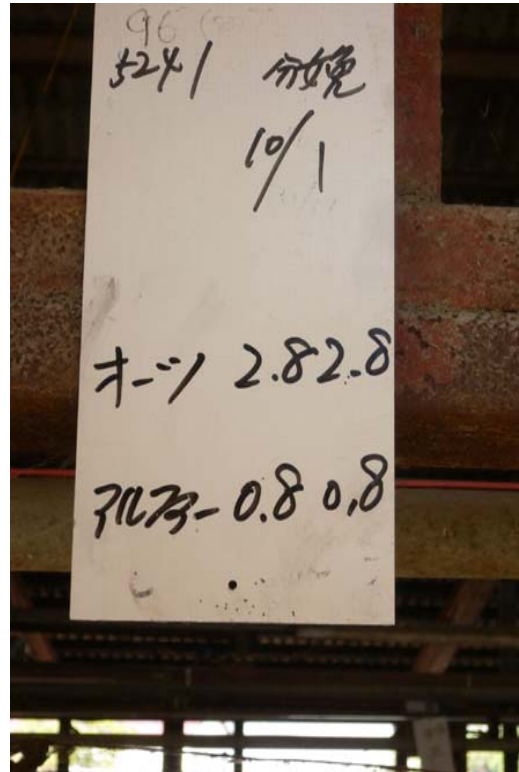 96
5241 分娩
10/1
オーツ 2.8 2.8
アルファー 0.8 0.8